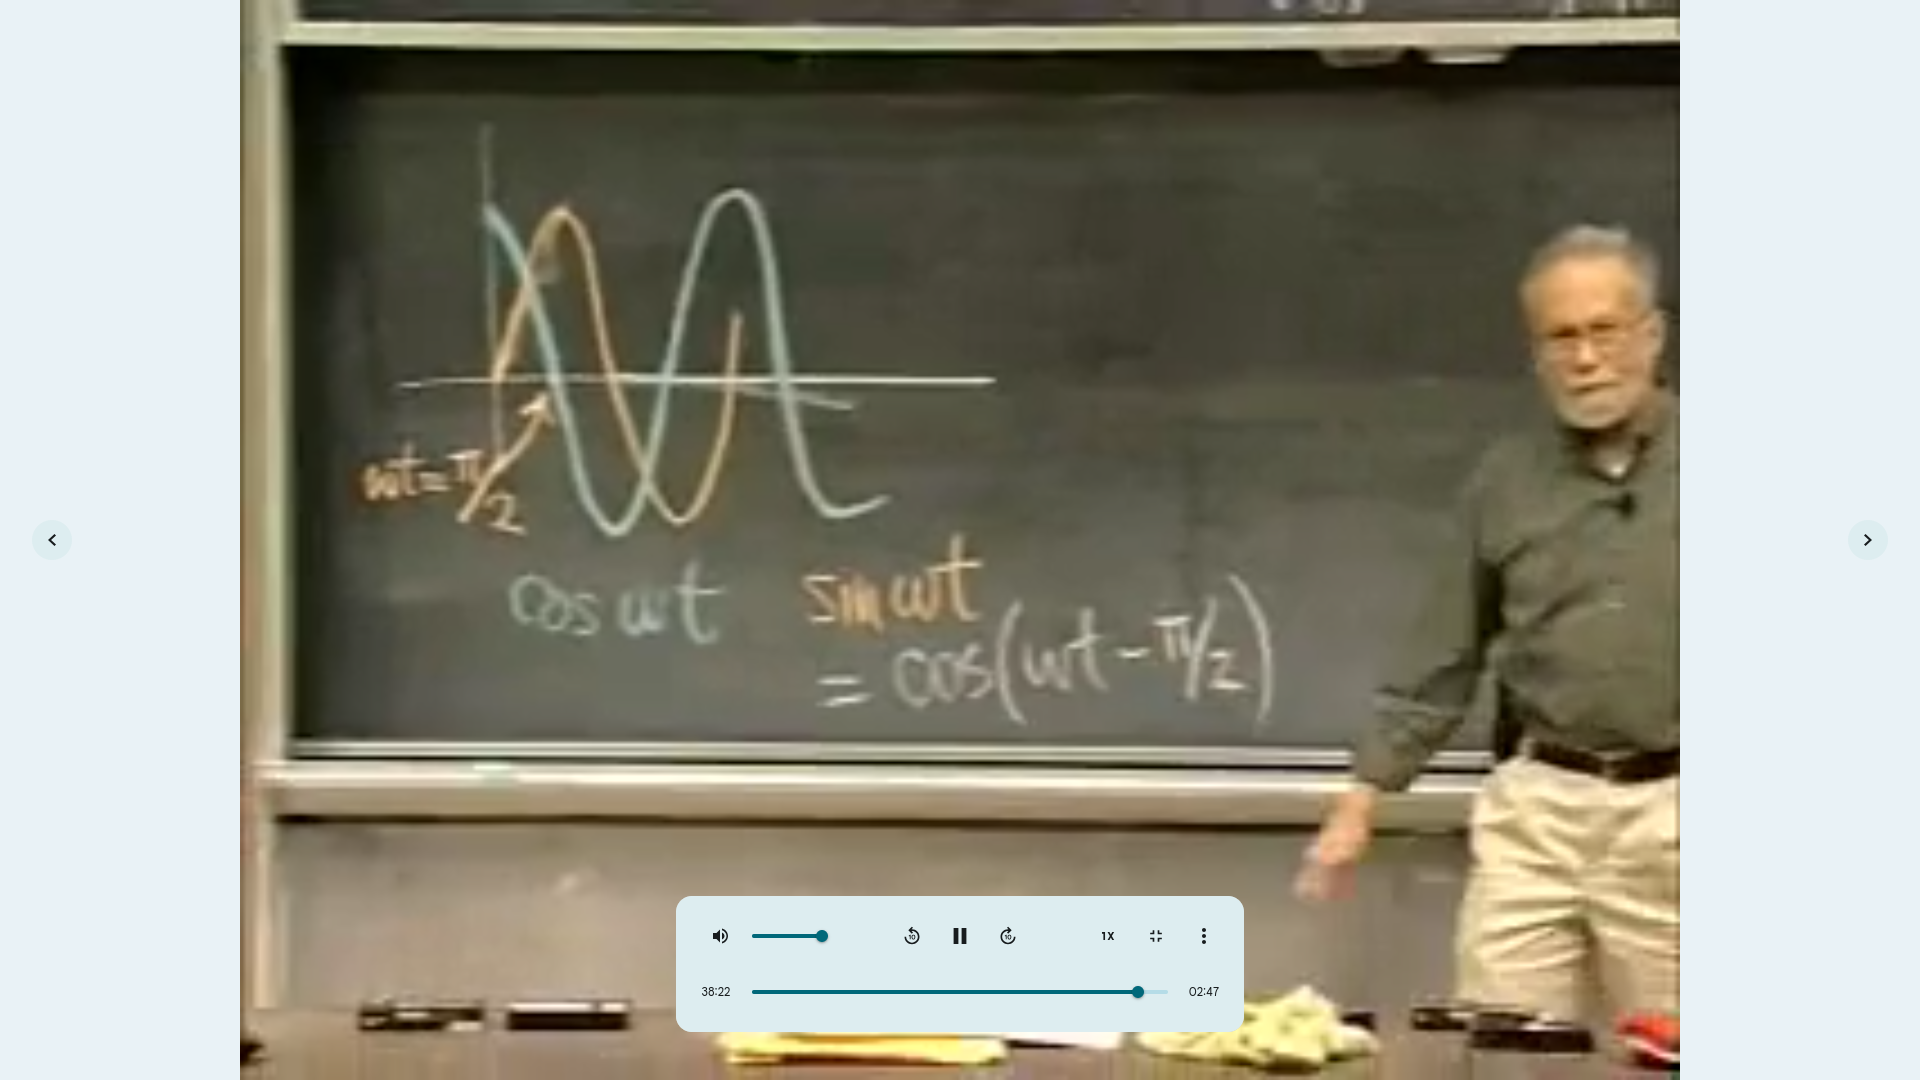 ωt=π/2
cos ωt
sin ωt
= cos(ωt-π/2)
10
10
1X
38:22
02:47